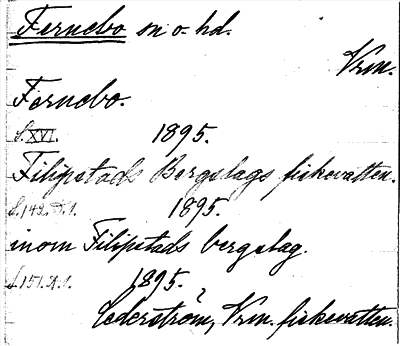 Fernebo sn o. hd.
Vrm.
Fernebo.
S. XVI. 1895.
Filipstads Bergslags fiskevatten.
S. 142. D. 1. 1895.
inom Filipstads bergslag.
S. 151. A. 1. 1895.
Cederström, Vrm. fiskevatten.